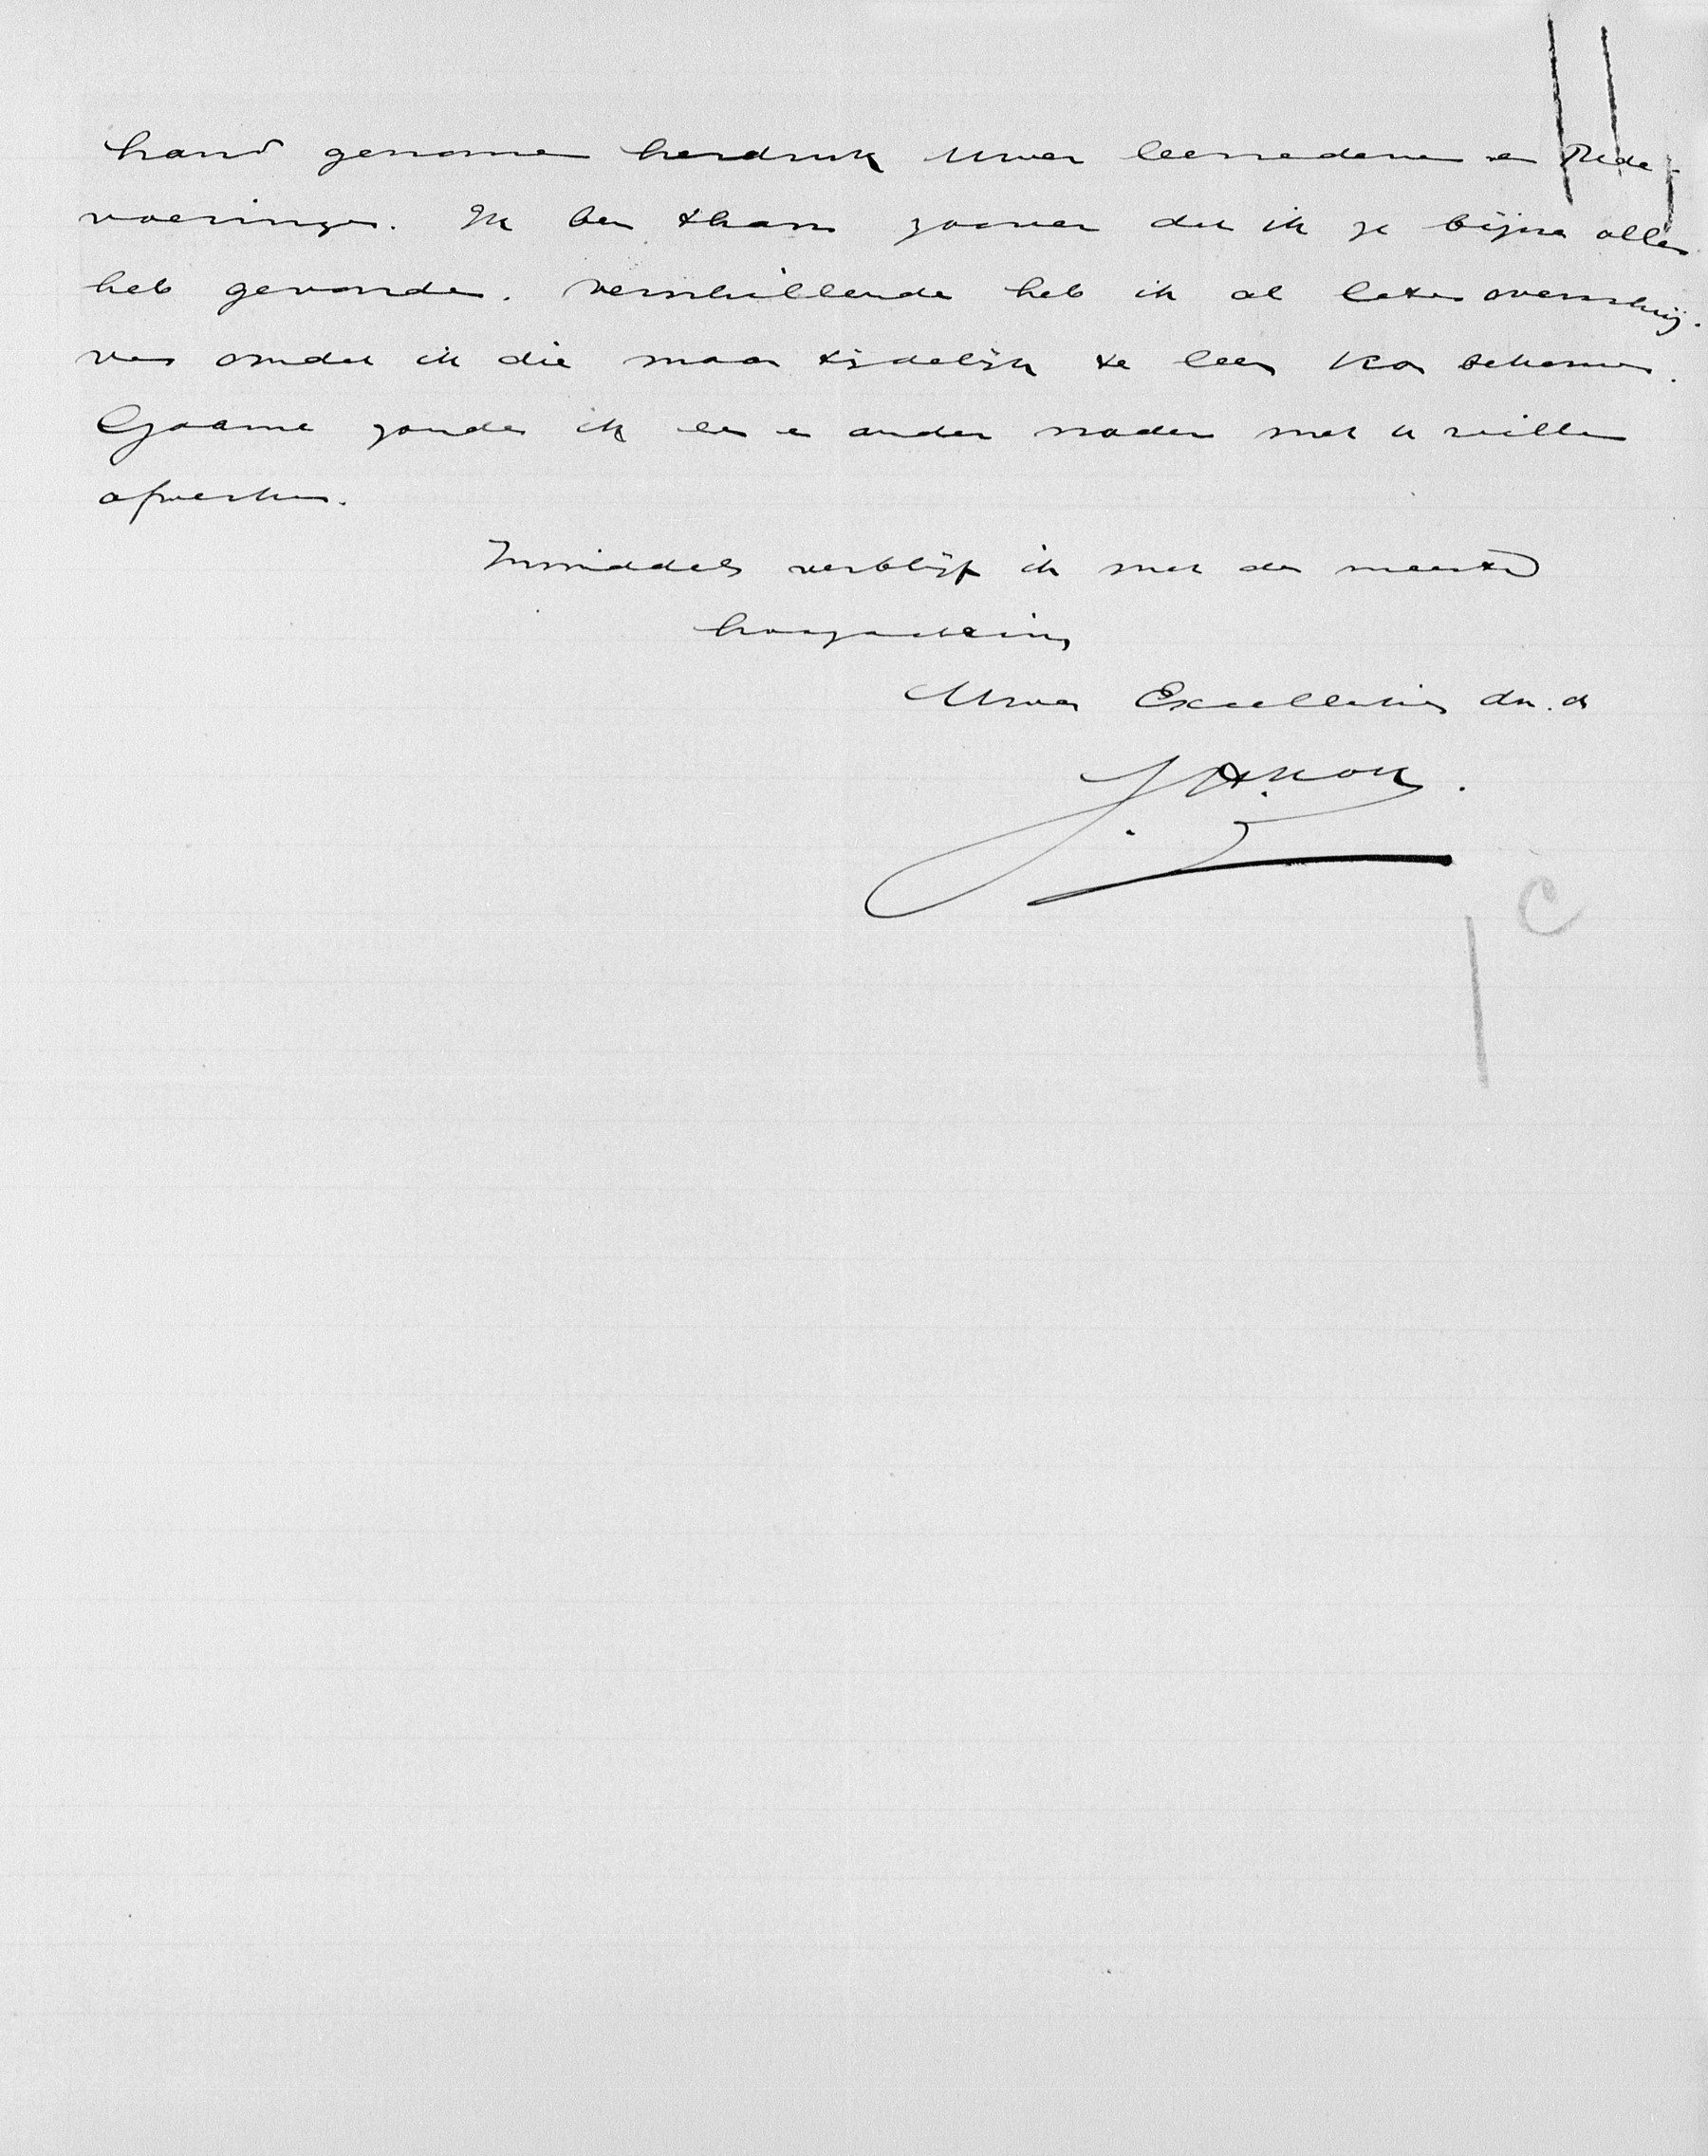 hand genomen herdruk Uwer leerredenen en Rede-
voeringen. Ik ben thans zoover dat ik ze bijna allen
heb gevonden. Verschillende heb ik al laten overschrij-
ven omdat ik die maar tijdelijk te leen kon bekomen.
Gaarne zoude ik een en ander nader met u willen
afwerken.
Inmiddels verblijf ik met de meeste
hoogachting
Uwer Excellenties dw. d
J. H. Kok.
C